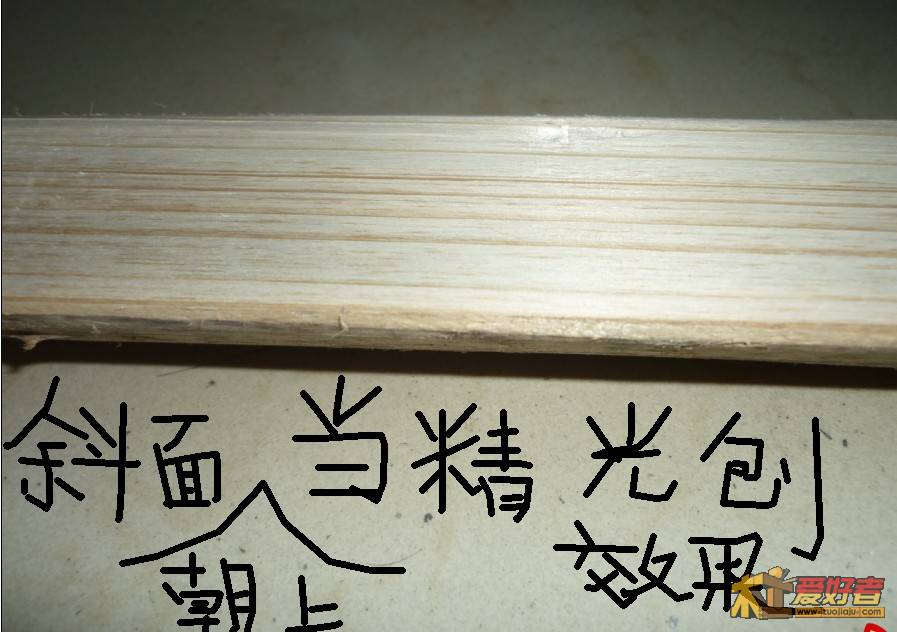 斜面当精光刨
朝上
效果
爱好者